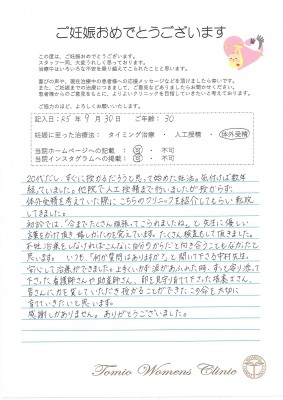 ご妊娠おめでとうございます
この度は、ご妊娠おめでとうございます。
スタッフ一同、大変うれしく思っております。
治療中はいろいろな不安を乗り越えてこられたことと思います。
喜びの声や、現在治療中の患者様への応援メッセージなどを頂けましたら幸いです。
また、ご妊娠までの治療につきまして、ご意見などありましたらお聞かせください。
患者様からのご意見をもとに、よりよいクリニックを目指していきたいと考えております。
ご協力のほど、よろしくお願いいたします。
記入日：R5年9月30日 ご年齢：30
妊娠に至った治療法： タイミング治療 ・ 人工授精 ・ 体外受精
当院ホームページへの記載 ： 可 ・ 不可
当院インスタグラムへの掲載 ： 可 ・ 不可
20代だし、すぐに授かるだろうと思って始めた妊活。気付けば数年
経っていました。他院で人工授精まで行いましたが授からず、
体外受精を考えていた際に、こちらのクリニックを紹介してもらい転院
してきました。
初診では、「今までたくさん頑張ってこられましたね。」と先生に優しい
言葉をかけて頂き、嬉しかったのを覚えています。たくさん検査もして頂きました。
不妊治療をしなければこんなに自分のからだと向き合うこともなかったと
思います。いつも、「何か質問はありますか？」と聞いて下さる中村先生。
安心して治療ができました。上手くいかず涙があふれた時、ずっと寄り添って
下さった看護師さんや助産師さん、卵を見守り育てて下さった培養士さん、
皆さんに力を貸していただき授かることができたこの命を大切に
育てていきたいと思います。
感謝しかありません。ありがとうございました。
Tomio Womens Clinic